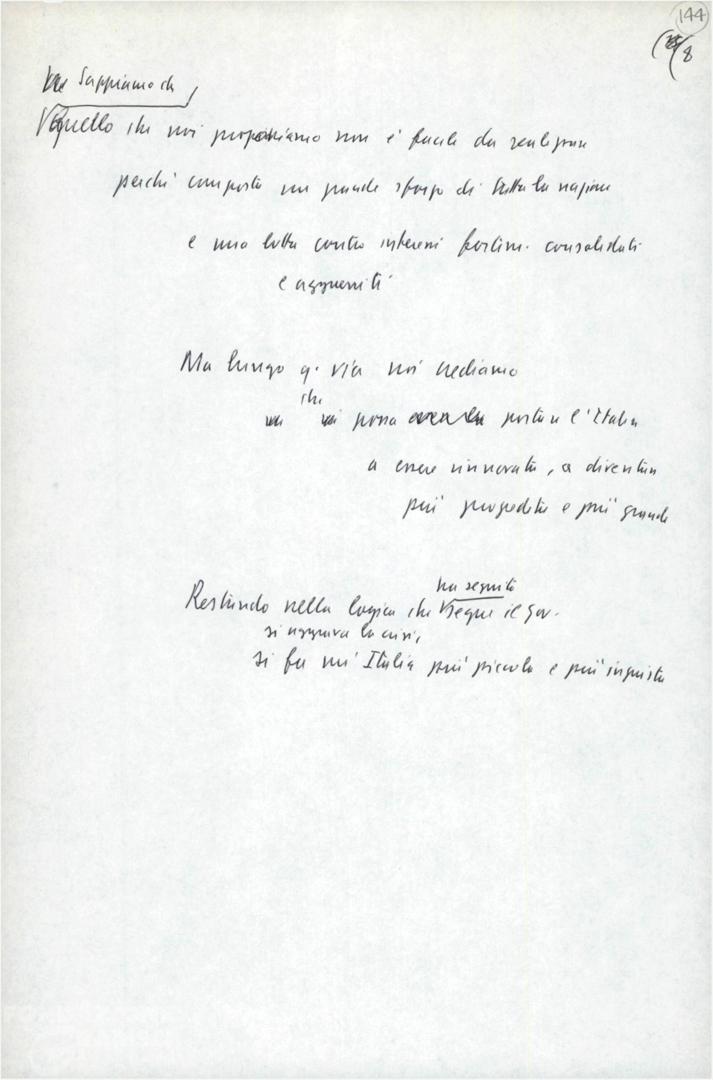 144
8
Sappiamo che
quello che noi proponiamo non è facile da realizzare
perché comporta un grande sforzo di tutta la nazione
e una lotta contro interessi fortiss. consolidati
e agguerriti
Ma lungo q. via noi vediamo
che
si possa portare l'Italia
a essere rinnovata, a diventare
più progredita e più grande
ha seguito
Restando nella logica che segue il gov.
si aggrava la crisi,
si fa un'Italia più piccola e più ingiusta